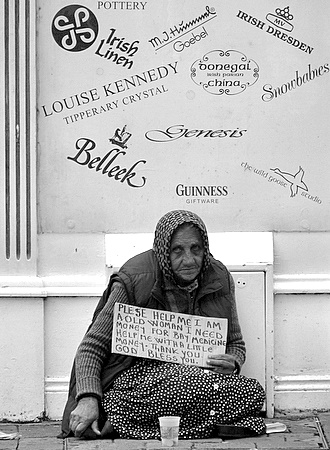 POTTERY
Irish
Linen
M.J. Hummel
Goebel
IRISH DRESDEN
MV
donegal
irish parian
china
Snowbabies
LOUISE KENNEDY
TIPPERARY CRYSTAL
Genesis
Belleek
the wild goose
studio
GUINNESS
GIFTWARE
PLESE HELP ME I AM
A OLD WOMAN I NEED
MONEY FOR BAY MEDICINE
HELP ME WITH A LITTLE
MONEY. THANK YOU
GOD BLESS YOU.